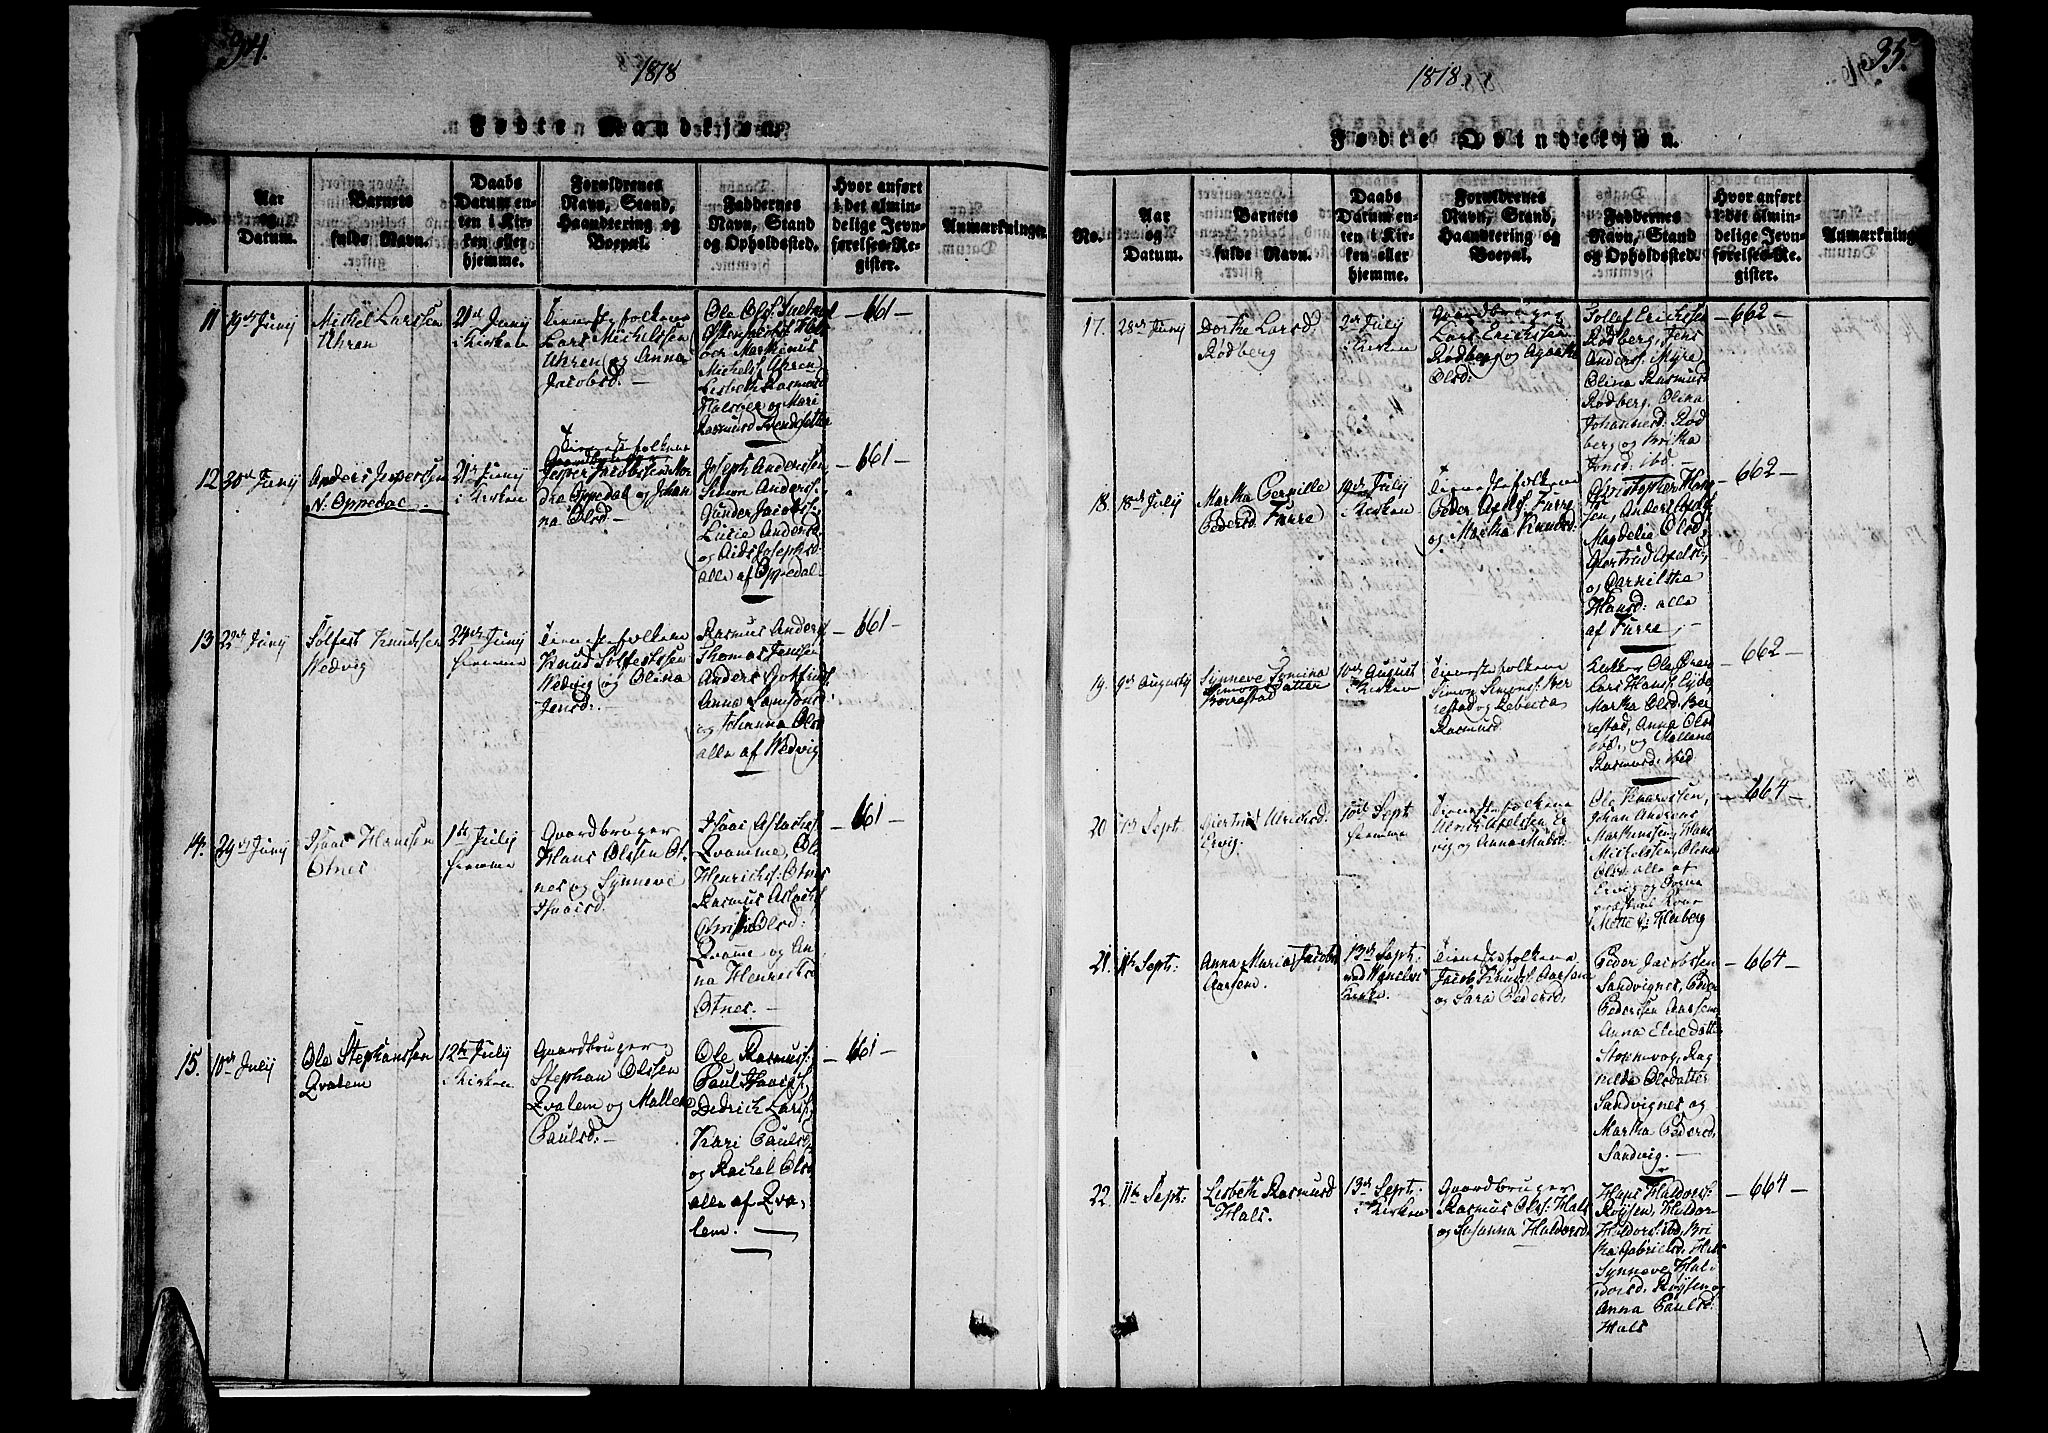 34.
1818
Fødte Mandkjøn.
No.
Aar
og
Datum.
Barnets
fulde Navn.
Daabs
Datum en-
ten i Kir-
ken eller
hjemme.
Forældrenes
Navn, Stand,
Haandtering og
Boepæl.
Faddernes
Navn, Stand
og Opholdssted.
Hvor anført
i det almin-
delige Jevn-
førelses-Re-
gister.
Anmærkninger
11
19de Junij
Michel Larssen
Uhren
21de Junij
i Kirken
Tienestefolkene
Lars Michelssen
Uhren og Anna
Jacobsd: —
Michels: Uhren
Lisbeth Rasmusd
661 —
12
20de Junij
Anders Jespersen
N. Oppedal.
21de Junij
i Kirken
Tienestefolkene
Jesper Jacobssen
Oppedal og Johan
na Olsd: —
Joseph Anderssen
Simon Anderss:
Gunder Jacobss:
Lucie Andersd
og Josephsd:
alle af Oppedal.
— 661 —
13
22de Junij
Sølfest Knudssen
Wedvig
24de Junij
hiemme
Tienestefolkene
Knud Sølfestssen
Wedvig og Olina
Jensd: —
Rasmus Anders
Thomas Jenssen
Anders Gotfrids
Anna Samsonsd:
og Johanna Olsd
alle af Wedvig
— 661 —
14.
29de Junij
Isaac Hanssen
Otnes
1de Julij
hiemme
Gaardbruger
Hans Olssen Ot-
nes og Synneve
Isaacsd.
Isaac Aslachs:
Qvamme, Ole
Henrichs: Otnes
Rasmus Aslachs
Olsd:
Qvame og An
na Henrichsd
Otnes. —
— 661 —
15.
10de Julij
Ole Stephanssen
Qvalem
12te Julij
i Kirken
Gaardbruger
Stephan Olssen
Qvalem og Malene
Paulsd: —
Ole Rasmuss:
Paul Isaacs:
Dedrich Larss:
Kari Paulsd
og Rachel Olsd
alle af Qva-
lem. —
— 661 —
35.
1818.
Fødte Qvindekjøn.
No.
Aar
og
Datum.
Barnets
fulde Navn.
Daabs
Datum en-
ten i Kir-
ken eller
hjemme.
Forældrenes
Navn, Stand,
Haandtering og
Boepæl.
Faddernes
Navn, Stand
og Opholdssted.
Hvor anført
i det almin-
delige Jevn-
førelses-Re-
gister.
Anmærkning
17.
28de Junij
Dorthe Larsd
Rødberg
2de Julij
i Kirken
Gaardbruger
Lars Erichssen
Rødberg og Agathe
Olsd:
Tollef Erichssen
Rødberg, Jens
Anderss: Myre
Olina Rasmusd
Rødberg, Olina
Johannesd: Rød
berg og Britha
Jonsd. ibd. —
— 662 —
18.
18de Julij
Martha Pernille
Pedersd Furre
19de Julij
i Kirken
Tienestefolkene
Peder Axels: Furre
og Martha Knudsd.
Christopher Hans
sen,
Magdelie Olsd:
Giertrud Axelsd,
og
Hansd: alle
af Furre. —
— 662 —
19.
9de Augustij
Synneve Symina
Simons Datter
Berrestad
10de August
i Kirken
Tienestefolkene
Simon Simons: Ber
restad og Rebecta
Rasmusd
Lars Hanss: Eyde
Martha Olsd. Ber
restad, Anna Olsd
ibd., og Mallene
Rasmusd: ibid
— 662 —
20.
7de Sept.
Giertru Ulrichsd.
Ervig.
10de Sept
hiemme
Tienestefolkene
Ulrich Axelssen Er
vig og Anna
Ole Knudssen,
Johan Andreas
Mathiussen, Hans
Michelssen, Olina
Olsd: alle af
Ervig og Sogne
præstens Kone
Mette Heiberg
— 664 —
21.
11te Sept:
Anna Maria Jacobsd
Aarsem.
13de Sept:
ved Wanelvs
Kirke.
Tienestefolkene
Jacob Knuds: Aarsem
og Sara Pedersd.
Peder Jacobssen
Sandvignes, Peder
Pederssen Aarsem,
Anna Elisedatter
Rag
nilda Olsdatter
Sandvignes og
Martha Pedersd.
Sandvig. —
— 664 —
22.
11te Sept:
Lisbeth Rasmusd
Hals.
13de Sept:
i Kirken
Gaardbruger
Rasmus Ols: Hals
og Susanna Haldorsd.
Hans Haldors:
Røysen, Haldor
Haldors: ibd, Bri
tha Gabrielsd. Hals
Synneve Hal
dorsd. Røysen og
Anna Paulsd:
Hals
— 664 —